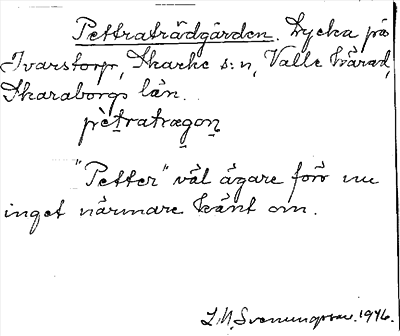 Pettraträdgården. Lycka på
Ivarstorp, Skarke s:n, Valle härad,
Skaraborgs län.
pètratrægon
"Petter" väl ägare förr nu
inget närmare känt om.
1946.